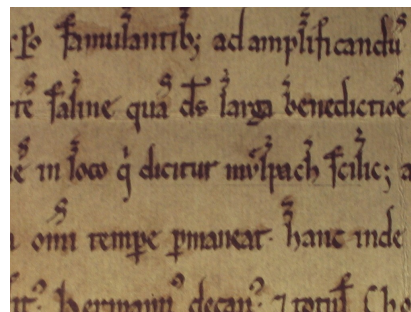 famulantib; ad amplificandū
saline quā ds larga benedictiōe
in loco q̇ dicitur mvlpach scilic;
omi tempe pmaneat· hanc inde
hermann⁹ decan⁹ ⁊ totū